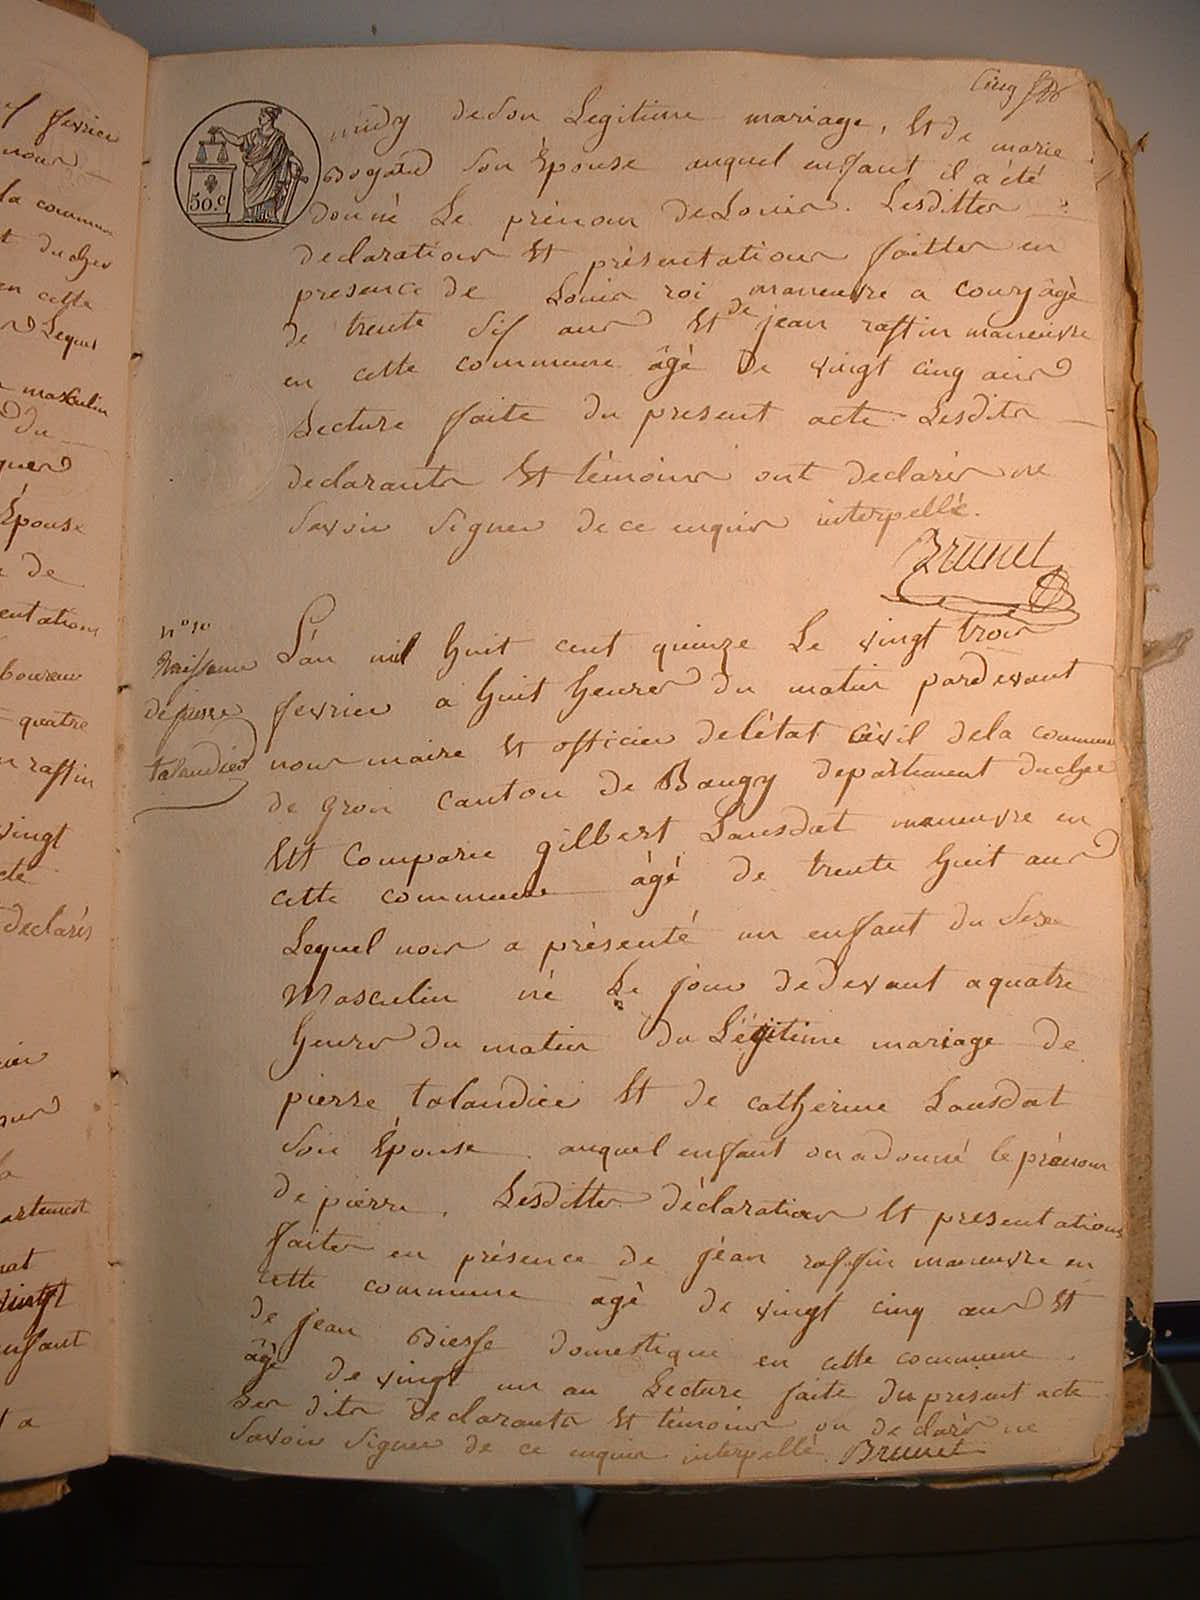 Cinq
50.c
midy de son Legitime mariage, Et de marie
son Epouse auquel enfant il a été
donné Le prénom de Louis. Lesdittes
declarations Et présentations faittes en
presence de Louis roi maneuvre a Couy âgé
de trente six ans Et de jean raffin maneuvre
en cette commune âgé De vingt cinq ans
Lecture faite du present acte Lesdits
declarants Et témoins ont declarés ne
savoir signer de ce enquis interpellé.
Brunet
N° 10
Naissance
de pierre
talandier
L'an mil huit cent quinze Le vingt trois
fevrier a huit heures du matin pardevant
nous maire Et officier de l'état Civil de la commune
de gron canton de Baugy departement du cher
Est Comparu gilbert Lansdat maneuvre en
cette commune âgé de trente huit ans
Lequel nous a présenté un enfant du Sexe
Masculin né Le jour dedevant a quatre
heures du matin du Légitime mariage de
pierre talandier Et de catherine Lansdat
son Epouse. auquel enfant on a donné le prénom
de pierre. Lesdittes déclarations Et presentations
faites en présence de jean raffin maneuvre en
cette commune âgé de vingt cinq ans Et
de jean Biesse domestique en cette commune.
âgé de vingt un an Lecture faite du present acte
Les dits Declarants Et témoins on declarés ne
savoir signer de ce enquis interpellé. Brunet
fevrier
nous
la commune
du cher
en cette
Lequel
masculin
du
Epouse
de
quatre
raffin
vingt
declarés
enfant